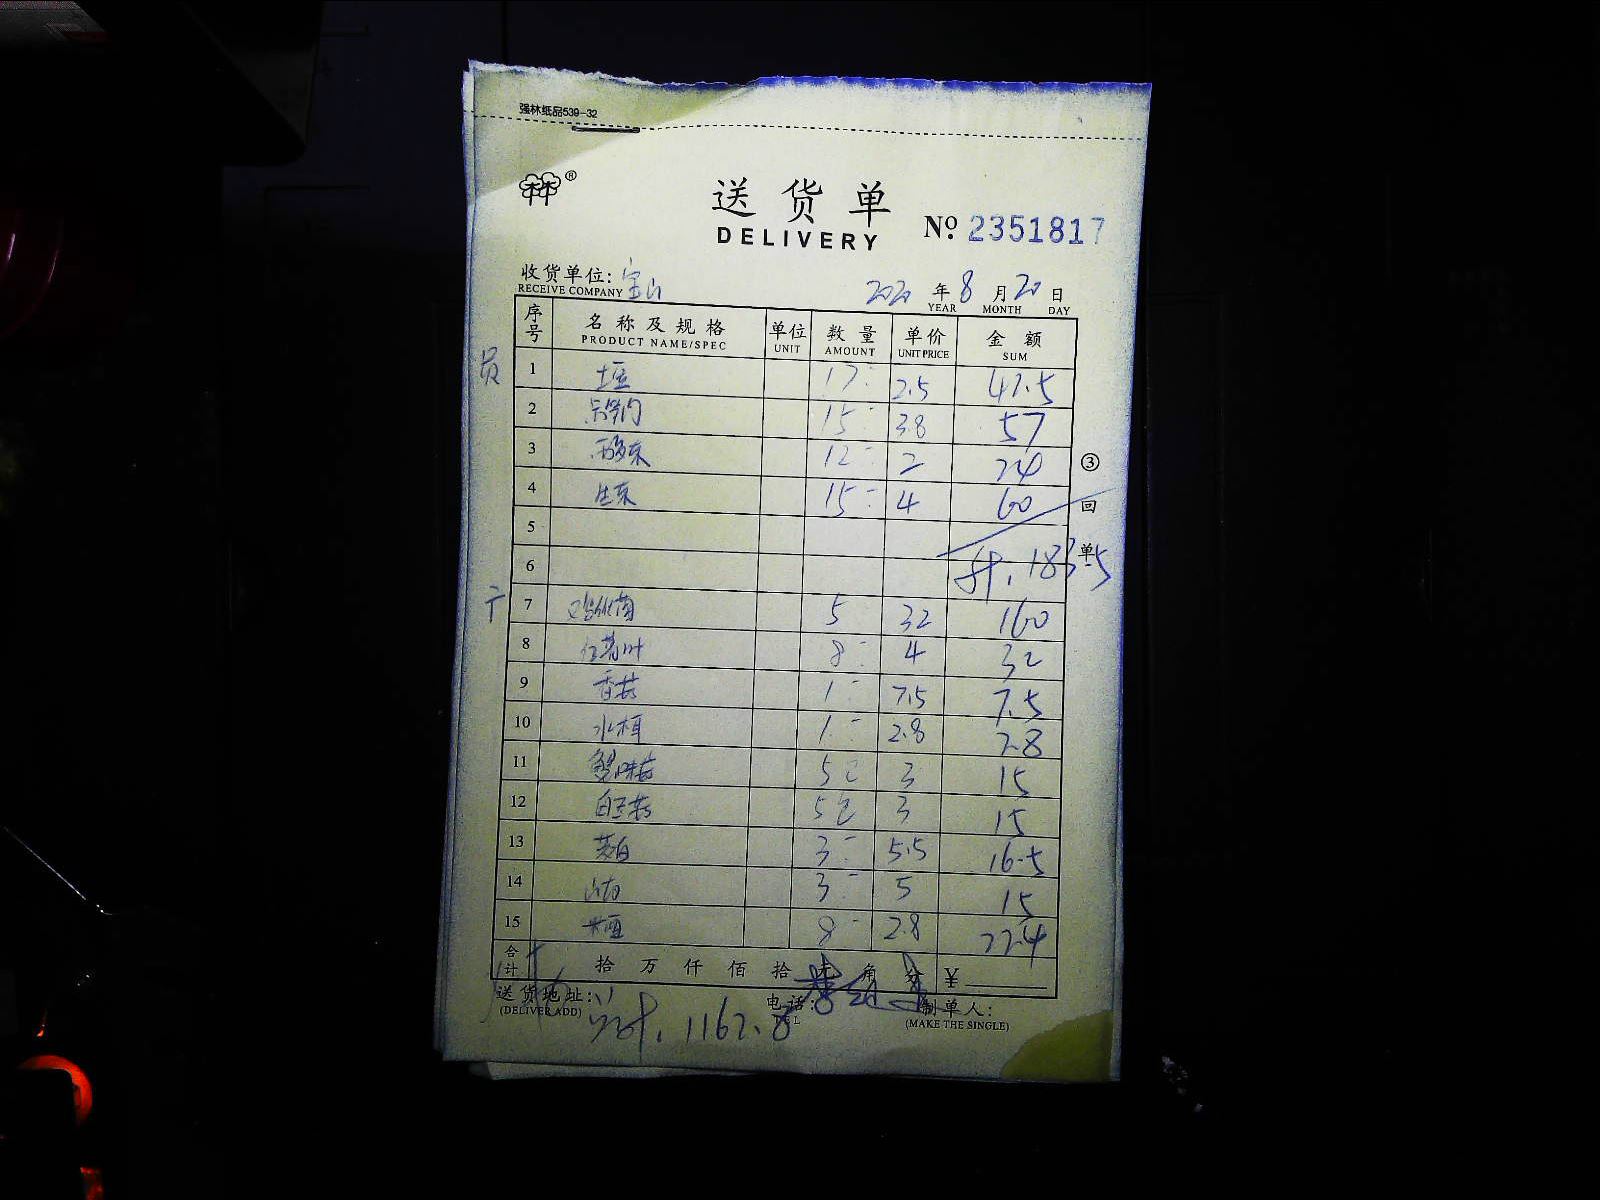 强林纸品539-32
林®
送货单
DELIVERY
№ 2351817
收货单位: 宝山
RECEIVE COMPANY
2020 年 8 月 20 日
YEAR MONTH DAY
序号 名称及规格 单位 数量 单价 金额
PRODUCT NAME/SPEC UNIT AMOUNT UNIT PRICE SUM
员
1 土豆 17 2.5 42.5
2 15 38 57
3 12 2 24
4 生菜 15 4 60
③ 回单
5
6 183.5
7 鸡纵菌 5 32 160
8 8 4 32
9 香菇 1 7.5 7.5
10 水木耳 1 2.8 2.8
11 蟹味菇 5包 3 15
12 白玉菇 5包 3 15
13 茭白 3 5.5 16.5
14 3 5 15
15 8 2.8 22.4
合计 拾万仟佰拾元角分 ¥
送货地址: 电话: 制单人:
(DELIVER ADD) TEL (MAKE THE SINGLE)
1162.8